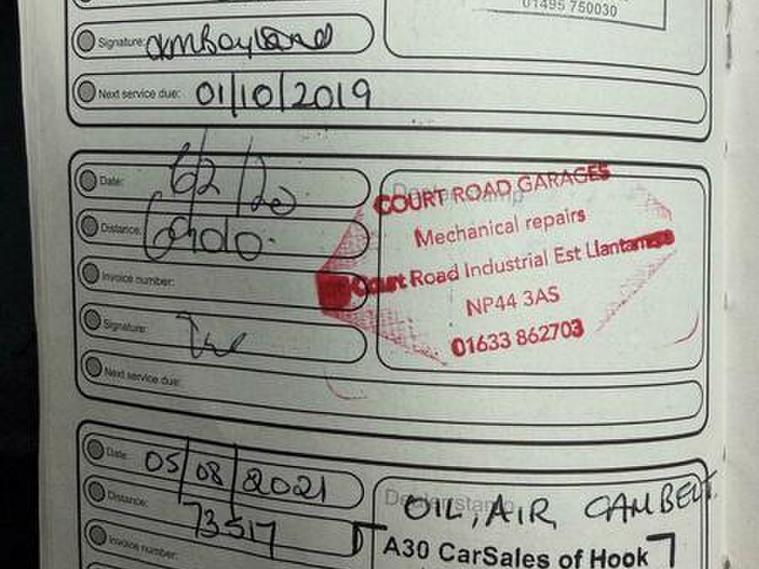 01495 750030
Signature:
Next service due: 01/10/2019
Date: 6/2/20
Dealer stamp
COURT ROAD GARAGES
Distance:
Mechanical repairs
Invoice number:
Court Road Industrial Est Llantarnam
NP44 3AS
Signature:
01633 862703
Next service due:
Date: 05/08/2021
Dealer stamp
OIL, AIR, CAMBELT
Distance: 73517
Invoice number:
A30 CarSales of Hook